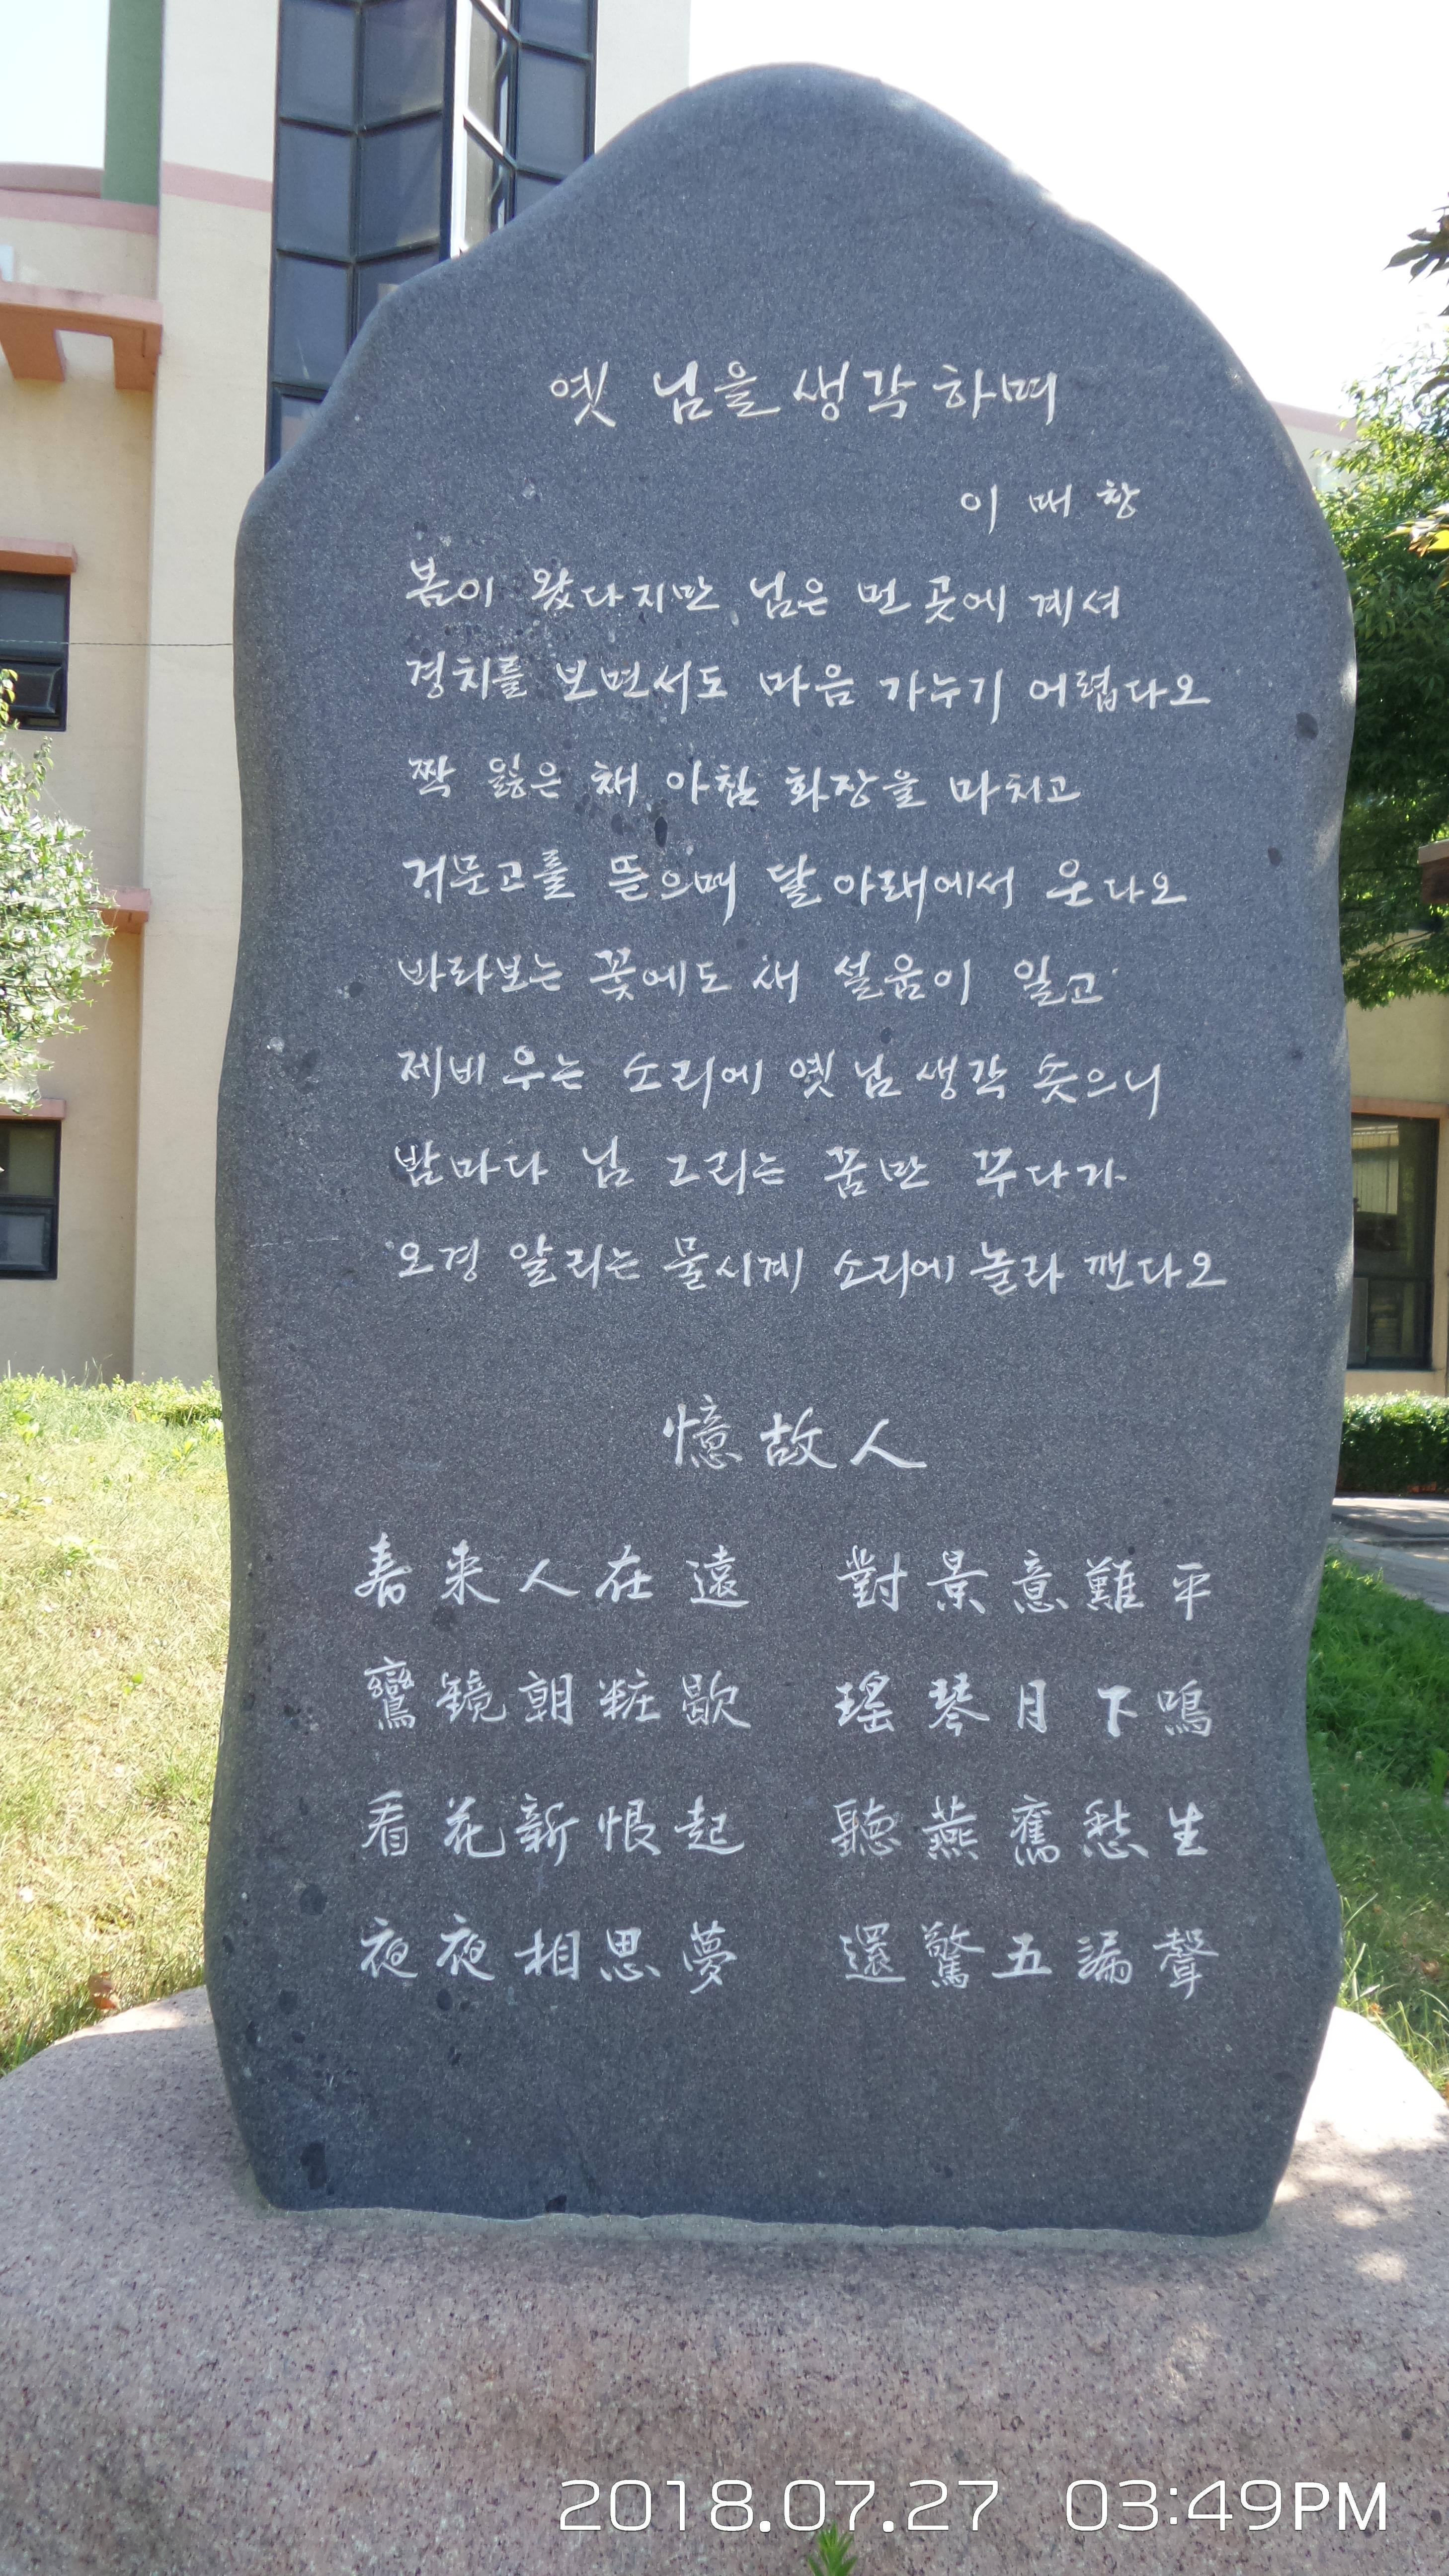 옛 님을 생각하며
이매창
봄이 왔다지만 님은 먼 곳에 계셔
경치를 보면서도 마음 가누기 어렵다오
짝 잃은 채 아침 화장을 마치고
거문고를 뜯으며 달 아래에서 운다오
바라보는 꽃에도 새 설움이 일고
제비 우는 소리에 옛 님 생각 솟으니
밤마다 님 그리는 꿈만 꾸다가
오경 알리는 물시계 소리에 놀라 깬다오
憶故人
春来人在遠 對景意難平
鸞鏡朝粧歇 瑤琴月下鳴
看花新恨起 聽燕舊愁生
夜夜相思夢 還驚五漏聲
2018.07.27 03:49PM